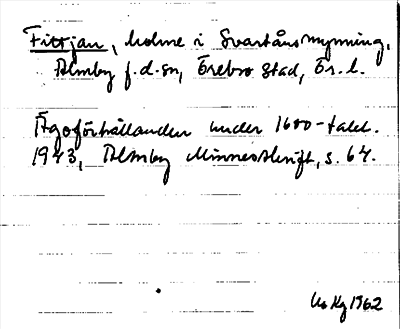 Fittjan, holme i Svartåns mynning,
Almby f.d. sn, Örebro stad, Ör. l.
Ägoförhållanden under 1600-talet.
1943, Almby Minnesskrift, s. 64.
Kg 1962